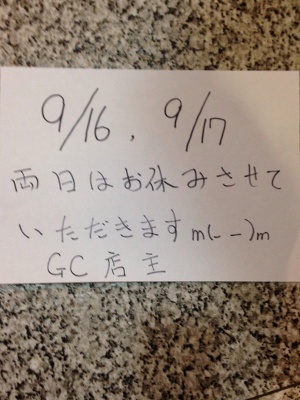 9/16, 9/17
両日はお休みさせて
いただきますm(- -)m
GC店主